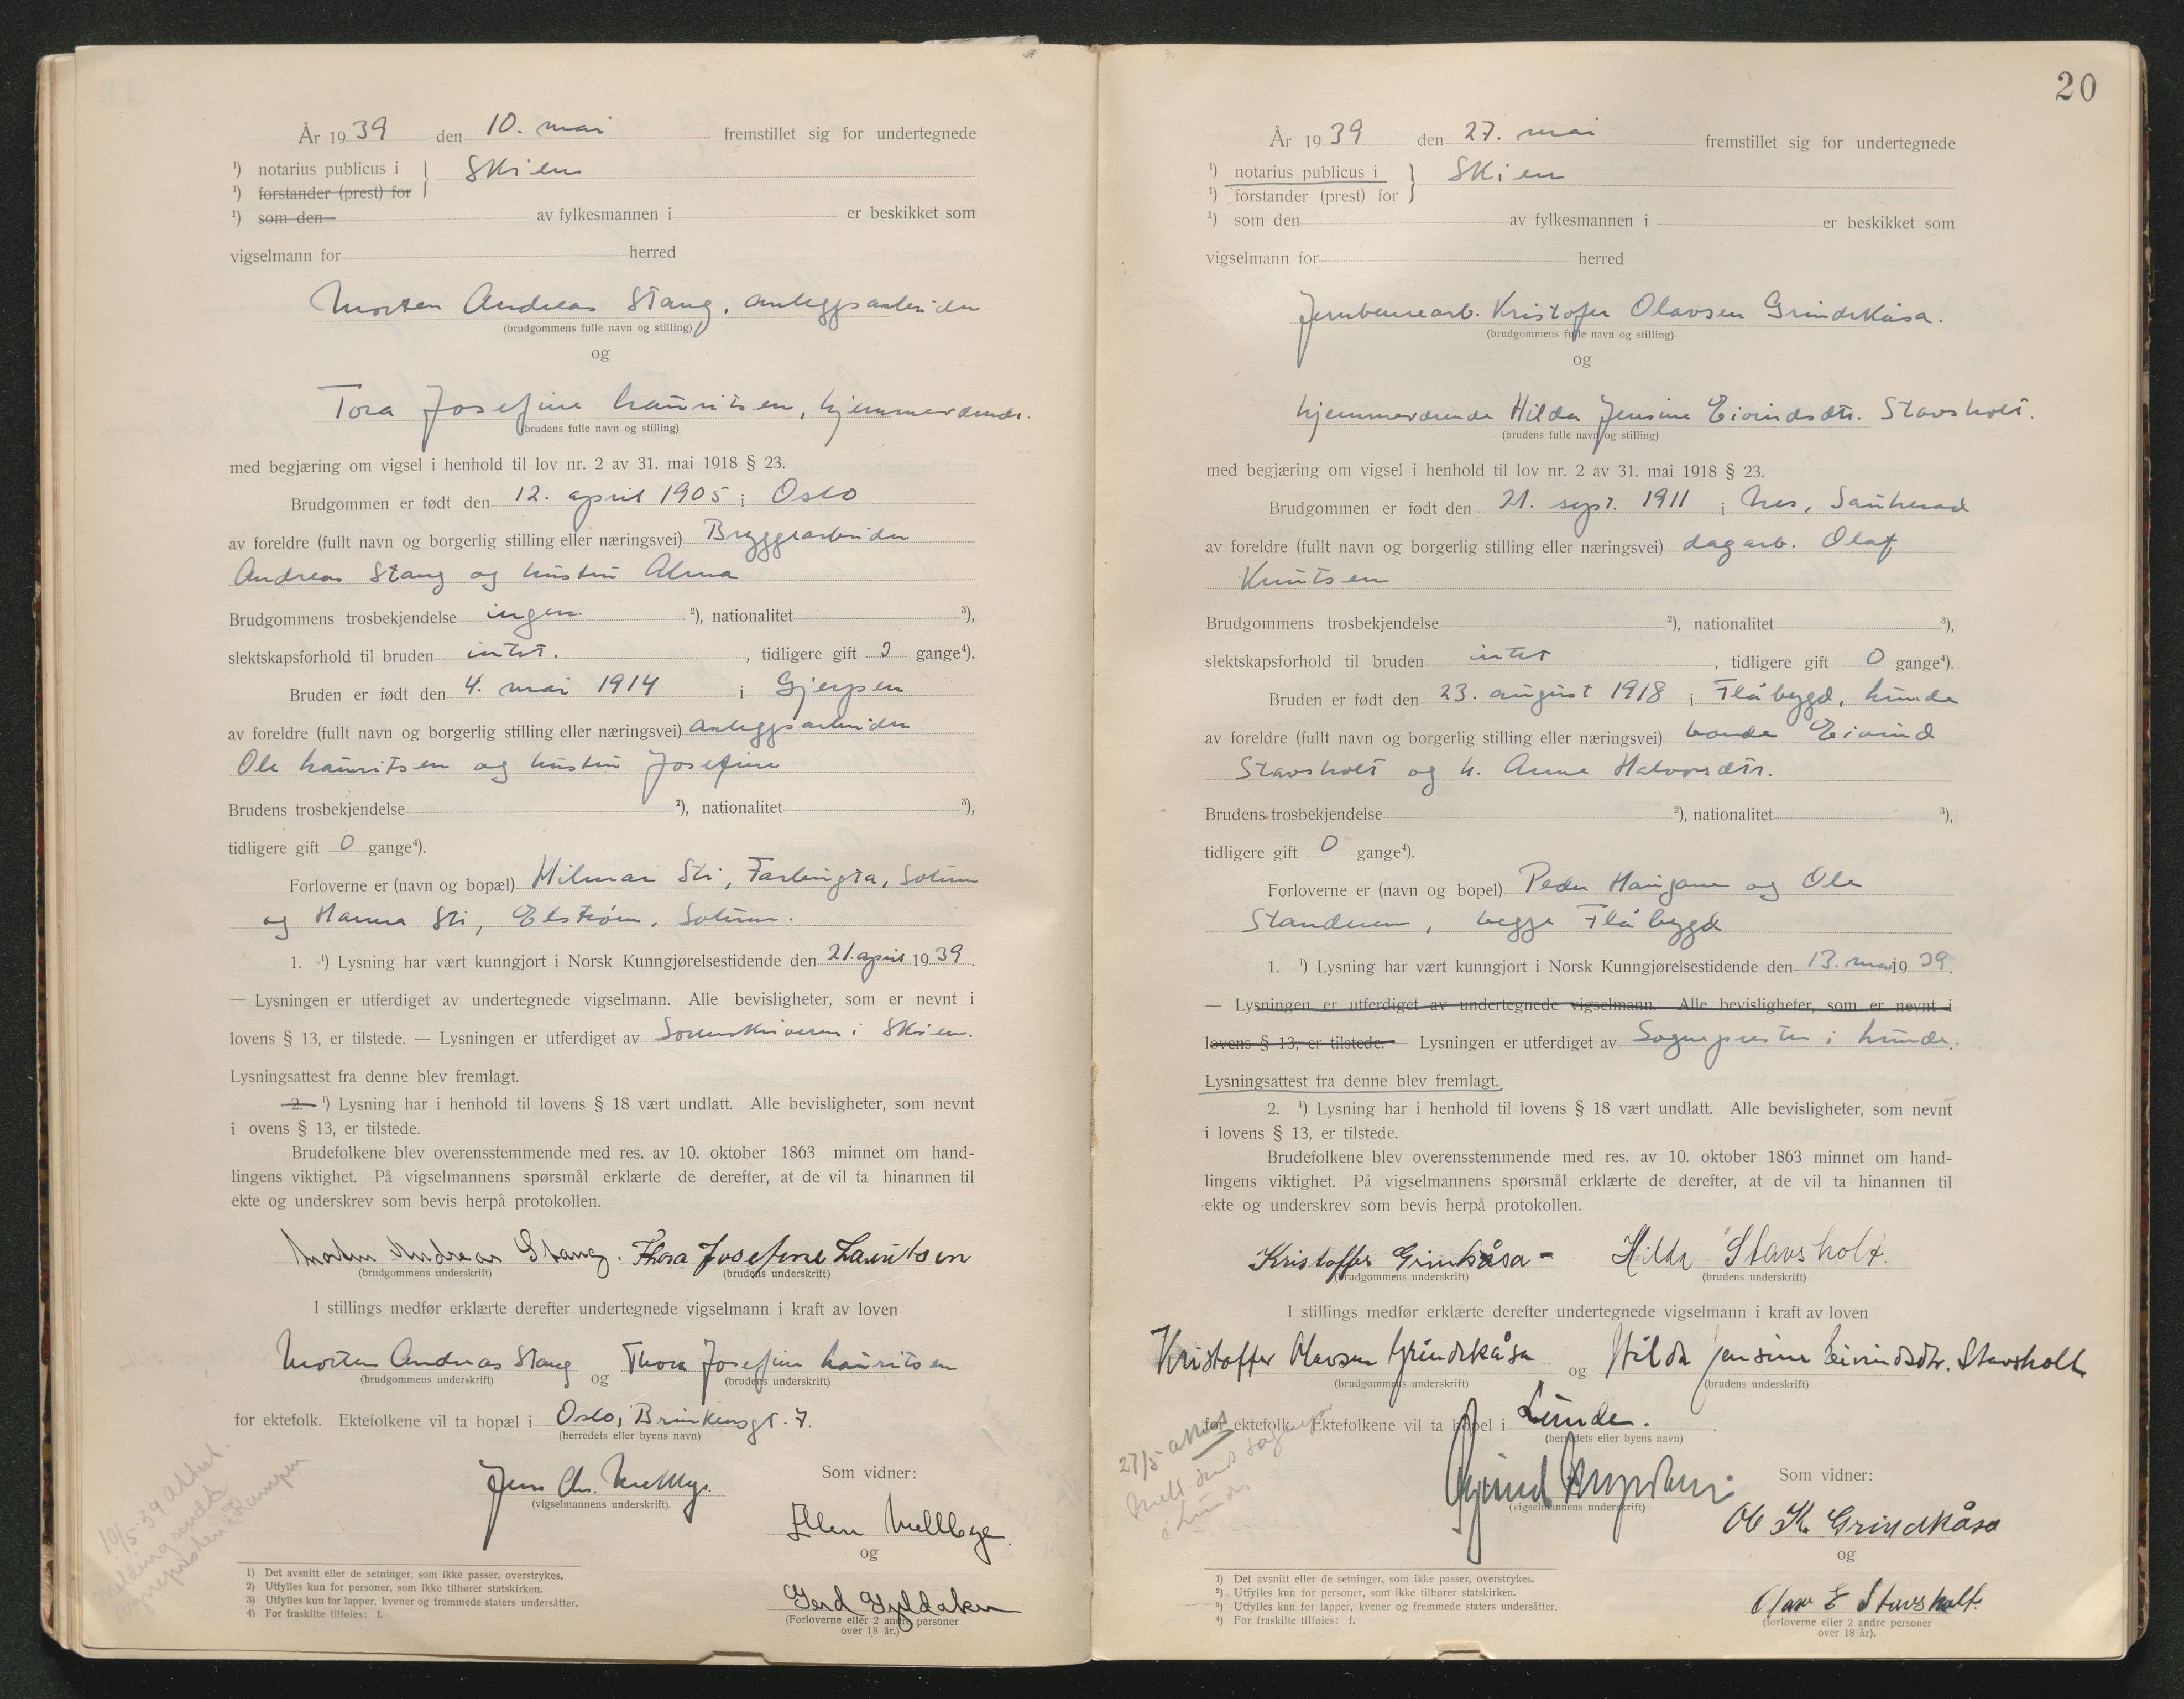 År 1939 den 10. mai fremstillet sig for undertegnede
¹) notarius publicus i } Skien
¹) forstander (prest) for
¹) som den av fylkesmannen i er beskikket som
vigselmann for herred
Morten Andreas Stang, anleggsarbeider
(brudgommens fulle navn og stilling)
og
Tora Josefine Lauritsen, hjemmeværende.
(brudens fulle navn og stilling)
med begjæring om vigsel i henhold til lov nr. 2 av 31. mai 1918 § 23.
Brudgommen er født den 12. april 1905 i Oslo
av foreldre (fullt navn og borgerlig stilling eller næringsvei) Bryggearbeider
Andreas Stang og hustru Alma
Brudgommens trosbekjendelse ingen. ²), nationalitet ³),
slektskapsforhold til bruden intet. , tidligere gift 0 gange⁴).
Bruden er født den 4. mai 1914 i Gjerpen
av foreldre (fullt navn og borgerlig stilling eller næringsvei) anleggsarbeider
Ole Lauritsen og hustru Josefine
Brudens trosbekjendelse ²), nationalitet ³),
tidligere gift 0 gange⁴).
Forloverne er (navn og bopæl) Hilmar Sti, Solum
og Hanna Sti, Elstrøm, Solum.
1. ¹) Lysning har vært kunngjort i Norsk Kunngjørelsestidende den 21. april 1939.
— Lysningen er utferdiget av undertegnede vigselmann. Alle bevisligheter, som er nevnt i
lovens § 13, er tilstede. — Lysningen er utferdiget av Sorenskriveren i Skien.
Lysningsattest fra denne blev fremlagt.
2. ¹) Lysning har i henhold til lovens § 18 vært undlatt. Alle bevisligheter, som nevnt
i ovens § 13, er tilstede.
Brudefolkene blev overensstemmende med res. av 10. oktober 1863 minnet om hand-
lingens viktighet. På vigselmannens spørsmål erklærte de derefter, at de vil ta hinannen til
ekte og underskrev som bevis herpå protokollen.
Morten Andreas Stang. Thora Josefine Lauritsen
(brudgommens underskrift) (brudens underskrift)
I stillings medfør erklærte derefter undertegnede vigselmann i kraft av loven
Morten Andreas Stang og Thora Josefine Lauritsen
(brudgommens underskrift) (brudens underskrift)
for ektefolk. Ektefolkene vil ta bopæl i Oslo, Brinkensgt. 7.
(herredets eller byens navn)
Jens Chr. Mellbye.
(vigselmannens underskrift).
Som vidner:
Ellen Mellbye.
og
Gerd Gyldaker
(Forloverne eller 2 andre personer
over 18 år.)
10/5-39 Attest.
melding sendt
sogneprsten i Kampen
1) Det avsnitt eller de setninger, som ikke passer, overstrykes.
2) Utfylles kun for personer, som ikke tilhører statskirken.
3) Utfylles kun for lapper, kvener og fremmede staters undersåtter.
4) For fraskilte tilføies: f.
20
År 1939 den 27. mai fremstillet sig for undertegnede
¹) notarius publicus i } Skien
¹) forstander (prest) for
¹) som den av fylkesmannen i er beskikket som
vigselmann for herred
Jernbanearb. Kristofer Olavsen Grindkåsa.
(brudgommens fulle navn og stilling)
og
hjemmeværende Hilda Jensine Eivindsdtr. Stavsholt.
(brudens fulle navn og stilling)
med begjæring om vigsel i henhold til lov nr. 2 av 31. mai 1918 § 23.
Brudgommen er født den 21. sept. 1911 i Nes, Sauherad
av foreldre (fullt navn og borgerlig stilling eller næringsvei) dagarb. Olaf
Knutsen
Brudgommens trosbekjendelse ²), nationalitet ³),
slektskapsforhold til bruden intet , tidligere gift 0 gange⁴).
Bruden er født den 23. august 1918 i Flåbygd, Lunde
av foreldre (fullt navn og borgerlig stilling eller næringsvei) bonde Eivind
Stavsholt og h. Anne Halvorsdtr.
Brudens trosbekjendelse ²), nationalitet ³),
tidligere gift 0 gange⁴).
Forloverne er (navn og bopel) Peder Haugane og Ole
Standeren, begge Flåbygd
1. ¹) Lysning har vært kunngjort i Norsk Kunngjørelsestidende den 13. mai 1939.
— Lysningen er utferdiget av undertegnede vigselmann. Alle bevisligheter, som er nevnt i
lovens § 13, er tilstede. — Lysningen er utferdiget av Sogneprsten i Lunde.
Lysningsattest fra denne blev fremlagt.
2. ¹) Lysning har i henhold til lovens § 18 vært undlatt. Alle bevisligheter, som nevnt
i lovens § 13, er tilstede.
Brudefolkene blev overensstemmende med res. av 10. oktober 1863 minnet om hand-
lingens viktighet. På vigselmannens spørsmål erklærte de derefter, at de vil ta hinannen til
ekte og underskrev som bevis herpå protokollen.
Kristoffer Grinkåsa - Hilda Stavsholt.
(brudgommens underskrift) (brudens underskrift)
I stillings medfør erklærte derefter undertegnede vigselmann i kraft av loven
Kristoffer Olavsen Grindkåsa og Hilda Jensine Eivindsdtr. Stavsholt
(brudgommens underskrift) (brudens underskrift)
for ektefolk. Ektefolkene vil ta bopel i Lunde.
(herredets eller byens navn)
27/5 attest
Meld. sendt sognepr.
i Lunde
(vigselmannens underskrift)
Som vidner:
Ol K. Grindkåsa
og
Olav E Stavsholt.
(forloverne eller 2 andre personer
over 18 år).
¹) Det avsnitt eller de setninger, som ikke passer, overstrykes.
²) Utfylles kun for personer, som ikke tilhører statskirken.
³) Utfylles kun for lapper, kvener og fremmede staters undersåtter.
⁴) For fraskilte tilføies: f.